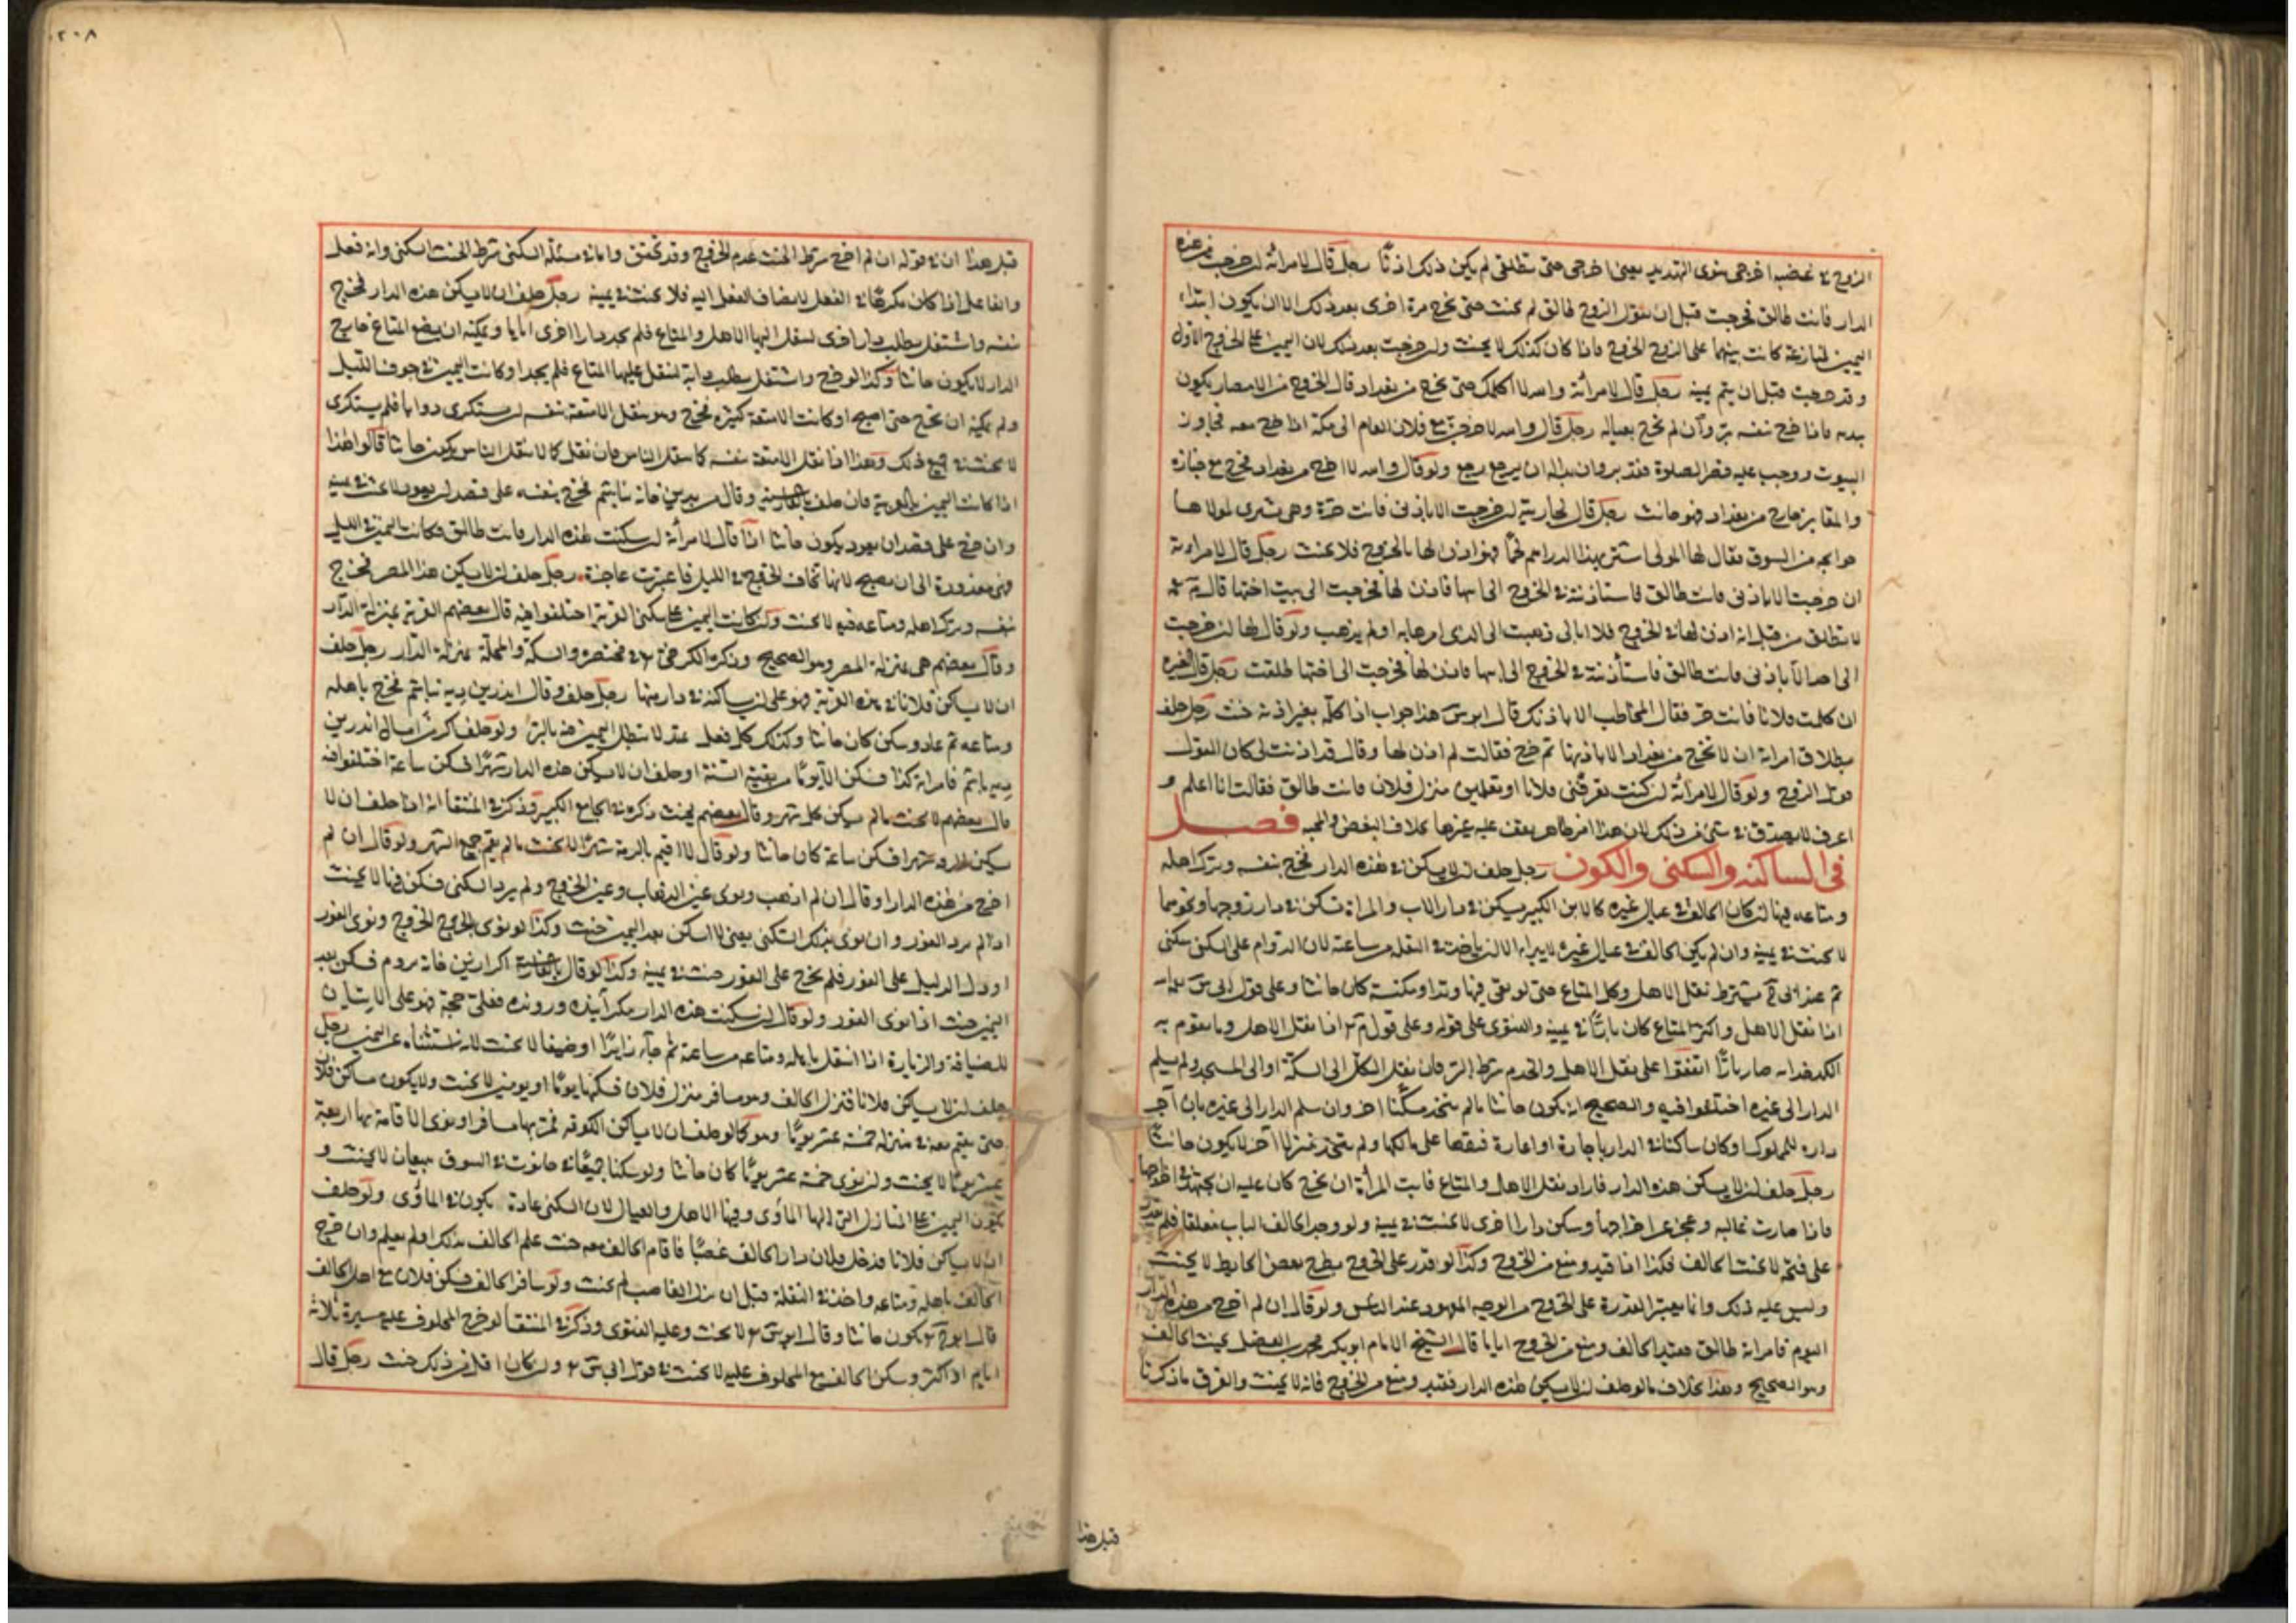 الزوج في غضبه اخرجي ينوي التهديد يعني اخرجي حتى تطلقي لم يكن ذلك اذنا رجل قال لامراته ان خرجت من هذه
الدار فانت طالق فخرجت قبل ان يقول الزوج طالق لم يحنث حتى تخرج مرة اخرى بعد ذلك الا ان يكون ابتداء
اليمين لمنازعة كانت بينهما على الزوج الخروج فاذا كان كذلك لا يحنث وان خرجت بعد ذلك لان اليمين على الخروج الاول
وقد خرجت قبل ان يتم يمينه رجل قال لامرأته والله لا اكلمك حتى تخرج من بغداد قال الخروج من الامصار يكون
ببدنه فاذا خرج بنفسه بر وان لم يخرج بعياله رجل قال والله لاخرجن مع فلان العام الى مكة اذا خرج معه فجاوز
البيوت ووجب عليه قصر الصلوة فقد بر وان بدا له ان يرجع رجع ولو قال والله لا اخرج من بغداد فخرج مع جنازة
والمقابر خارج من بغداد فهو حانث رجل قال لجاريته ان خرجت الا باذني فانت حرة وهي تشتري لمولاها
حوايجه من السوق فقال لها المولى اشتري بهذا الدراهم لحما فهو اذن لها بالخروج فلا يحنث رجل قال لامراته
ان خرجت الا باذني فانت طالق فاستاذنته في الخروج الى اسها فاذن لها فخرجت الى بيت اختها قال
لا تطلق من قبل انه اذن لها في الخروج فلا ابالي ذهبت الى الذي امرها به او لم يذهب ولو قال لها ان خرجت
الى احد الا باذني فانت طالق فاستأذنته في الخروج الى ابيها فاذن لها فخرجت الى اختها طلقت رجل قال لغيره
ان كلمت فلانا فانت حر فقال المخاطب الا باذنك قال ابو س هذا جواب اذا كلمه بغير اذنه حنث رجل حلف
بطلاق امراته ان لا تخرج من بغداد الا باذنها ثم خرج فقالت لم اذن لها وقال قد اذنت لي كان القول
قول الزوج ولو قال لامرأته ان كنت تعرفني فلانا او تعلمين منزل فلان فانت طالق فقالت انا اعلم و
اعرف لا يصدق في شئ من ذلك لان هذا امر ظاهر يقف عليه غيرها بخلاف البغض والمحبة فصل
في المساكنة والسكنى والكون رجل حلف ان لا يسكن في هذه الدار فخرج بنفسه وترك اهله
ومتاعه فيها ان كان الحالف في عيال غيره كالابن الكبير يسكن في دار الاب والمراة تسكن في دار زوجها ونحوهما
لا يحنث في يمينه وان لم يكن الحالف في عيال غيره لا يبراء الا ان ياخذ في النقلة من ساعته لان الدوام على السكنى سكنى
ثم عند ابي ح يشترط نقل الاهل وكل المتاع حتى لو بقي فيها وتد او مكنسة كان حانثا وعلى قول ابي س
اذا نقل الاهل واكثر المتاع كان بارا في يمينه والفتوى على قوله وعلى قول م اذا نقل الاهل وما يقوم به
الكدخداية صار بارا اتفقوا على نقل الاهل والخدم شرط البر فان نقل الكل الى السكة او الى المسجد ولم يسلم
الدار الى غيره اختلفوا فيه والصحيح انه يكون حانثا ما لم يتخذ مسكنا اخر وان سلم الدار الى غيره بان آجر
داره المملوكة او كان ساكنا في الدار باجارة او اعارة فنقضها على مالكها ولم يتخذ منزلا آخر لا يكون حانثا
رجل حلف ان لا يسكن هذه الدار فاراد نقل الاهل والمتاع فابت المرأة ان تخرج كان عليه ان يجتهد في اخراجها
فاذا صارت غالبه وعجز عن اخراجها وسكن دارا اخرى لا يحنث في يمينه ولو وجد الحالف الباب مغلقا فلم يقدر
على فتحه لا يحنث الحالف فكذا اذا قيد ومنع من الخروج وكذا لو قدر على الخروج بطرح بعض الحايط لا يحنث
وليس عليه ذلك وانما يعتبر القدرة على الخروج من الوجه المعهود عند الناس ولو قال ان لم اخرج من هذه الدار
اليوم فامراته طالق فقيد الحالف ومنع من الخروج اياما قال الشيخ الامام ابو بكر محمد بن الفضل يحنث الحالف
وهو الصحيح وهذا بخلاف ما لو حلف ان لا يسكن هذه الدار فقيد ومنع من الخروج فانه لا يحنث والفرق ما ذكرنا
قبل هذا
٢٠٨
قبل هذا ان في قوله ان لم اخرج شرط الحنث عدم الخروج وقد تحقق واما في مسئلة السكنى شرط الحنث السكنى وانه فعل
والفاعل اذا كان مكرها في الفعل لا يضاف الفعل اليه فلا يحنث في يمينه رجل حلف ان لا يسكن هذه الدار فخرج
بنفسه واشتغل بطلب دار اخرى لينقل اليها الاهل والمتاع فلم يجد دارا اخرى اياما ويمكنه ان يضع المتاع خارج
الدار لا يكون حانثا وكذا لو خرج واشتغل بطلب دابة لينقل عليها المتاع فلم يجد او كانت اليمين في جوف الليل
ولم يمكنه ان يخرج حتى اصبح او كانت الامتعة كثيرة فخرج وهو ينقل الامتعة بنفسه ان يستكري دوابا فلم يستكري
لا يحنث في جميع ذلك وهذا اذا نقل الامتعة بنفسه كما ينقل الناس فان نقل كما لا ينقل الناس يكون حانثا قالوا هذا
اذا كانت اليمين بالعربية فان حلف بالفارسية وقال من بدين خانه نباشم فخرج بنفسه على قصد ان يعود لا يحنث في يمينه
وان خرج على قصد ان يعود يكون حانثا اذا قال لامرأته ان سكنت هذه الدار فانت طالق وكانت اليمين في الليل
فهي معذورة الى ان تصبح لانها تخاف الخروج في الليل فاعتبرت عاجزة رجل حلف ان لا يسكن هذا المصر فخرج
بنفسه وترك اهله ومتاعه فيه لا يحنث وان كانت اليمين على سكنى القرية اختلفوا فيه قال بعضهم القرية بمنزلة الدار
وقال بعضهم هي بمنزلة المصر وهو الصحيح وذكره الكرخي في مختصره والسكة والمحلة بمنزلة الدار رجل حلف
ان لا يساكن فلانا في هذه القرية فهو على ان يساكنه في دار منها رجل حلف وقال اندرين ديه نباشم فخرج باهله
ومتاعه ثم عاد وسكن كان حانثا وكذلك كل فعل يمتد لا تبطل اليمين فيه بالبر ولو حلف كرت امسال اندرين
ديه باشم فامراته كذا فسكن الا يوما من بقية السنة او حلف ان لا يسكن هذه الدار شهرا فسكن ساعة اختلفوا فيه
قال بعضهم لا يحنث ما لم يسكن كل شهر وقال بعضهم يحنث ذكره في الجامع الكبير وذكر في المنتقا انه اذا حلف ان لا
يسكن شهرا فسكن ساعة كان حانثا ولو قال لا اقيم بالرقة شهرا لا يحنث ما لم يقم جميع الشهر ولو قال ان لم
اخرج من هذه الدار او قال ان لم اذهب ونوى عين الذهاب وعين الخروج ولم يرد السكنى فسكن فيها لا يحنث
اذا لم يرد الفور وان نوى بذلك السكنى يعني لا اسكن بعد اليمين حنث وكذا لو نوى الخروج ونوى الفور
او دل الدليل على الفور فلم يخرج على الفور حنث في يمينه وكذا لو قال بالفارسية اكر ازين خانه نروم فسكن بعد
اليمين حنث اذا نوى الفور ولو قال ان سكنت هذه الدار مكر آينده ورونده فعلي حجة فهو على الاتيان
للضيافة والزيارة اذا انتقل باهله ومتاعه من ساعته ثم جاء زايرا او ضيفا لا يحنث لانه استثناه عن اليمين رجل
حلف ان لا يساكن فلانا فنزل الحالف وهو مسافر منزل فلان فسكنها يوما او يومين لا يحنث ولا يكون مساكن فلان
حتى يقيم معه في منزله خمسة عشر يوما وهو كما لو حلف ان لا يساكن الكوفة فمر بها مسافرا ونوى الاقامة بها اربعة
عشر يوما لا يحنث وان نوى خمسة عشر يوما كان حانثا ولو سكنا جميعا في حانوت في السوق يبيعان لا يحنث و
يكون اليمين على المنازل التي اليها المأوى وفيها الاهل والعيال لان السكنى عادة يكون في المأوى ولو حلف
ان لا يساكن فلانا فدخل فلان دار الحالف غصبا فاقام الحالف معه حنث علم الحالف بذلك او لم يعلم وان خرج
الحالف باهله ومتاعه واخذ في النقلة قبل ان نزل الغاصب لم يحنث ولو سافر الحالف فسكن فلان مع اهل الحالف
قال ابو ح يكون حانثا وقال ابو س لا يحنث وعليه الفتوى وذكر في المنتقا لو خرج المحلوف عليه مسيرة ثلاثة
ايام او اكثر وسكن الحالف مع المحلوف عليه لا يحنث في قول ابي س وان كان اقل من ذلك حنث رجل قال